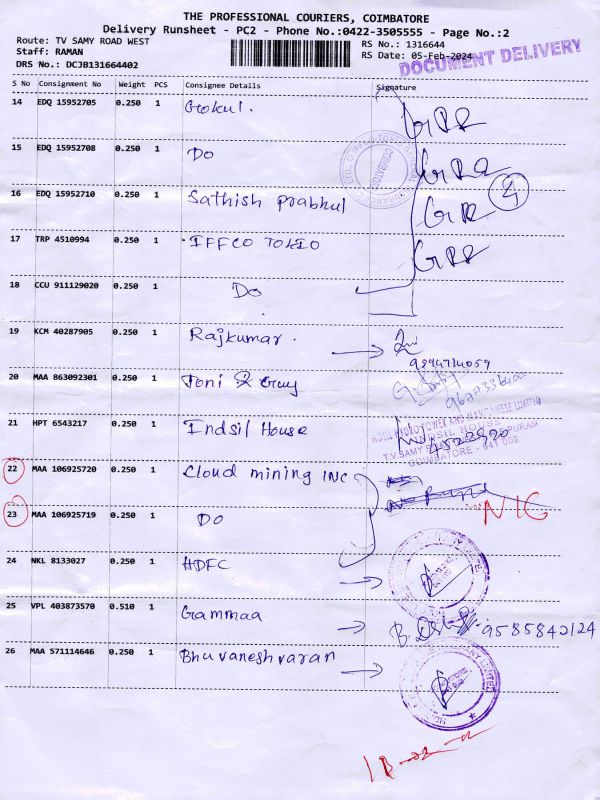 THE PROFESSIONAL COURIERS, COIMBATORE
Delivery Runsheet - PC2 - Phone No.:0422-3505555 - Page No.:2
Route: TV SAMY ROAD WEST
RS No.: 1316644
Staff: RAMAN
RS Date: 05-Feb-2024
DRS No.: DCJB131664402
DOCUMENT DELIVERY
S No Consignment No Weight PCS Consignee Details Signature
14 EDQ 15952705 0.250 1 Gokul.
15 EDQ 15952708 0.250 1 Do
16 EDQ 15952710 0.250 1 Sathish Prabhul
4
17 TRP 4510994 0.250 1 IFFCO TOKIO
18 CCU 911129020 0.250 1 Do
19 KCM 40287905 0.250 1 Rajkumar.
9894714059
20 MAA 863092301 0.250 1 Toni & Guy
21 HPT 6543217 0.250 1 Indsil House
INDSIL HYDRO POWER AND MANGANESE LIMITED
INDSIL HOUSE
T.V SAMY ROAD
COIMBATORE - 641 002
22 MAA 106925720 0.250 1 Cloud mining INC
23 MAA 106925719 0.250 1 Do
NIG
24 NKL 8133027 0.250 1 HDFC
25 VPL 403873570 0.510 1 Gammaa
9585842124
26 MAA 571114646 0.250 1 Bhuvaneshvaran